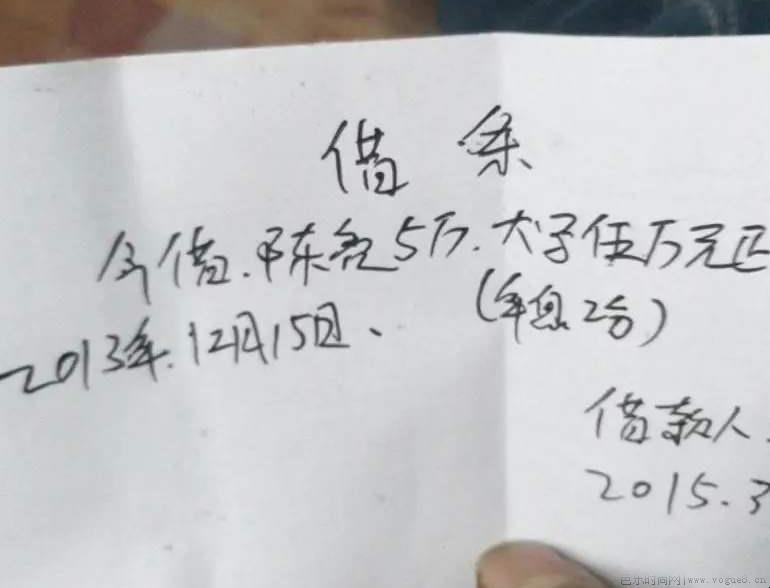 借条
今借.陈亮5万.大字伍万元正
2013年.12月15日、 (年息2分)
借款人.
2015.3
色乐时间网|www.vogue8.cn